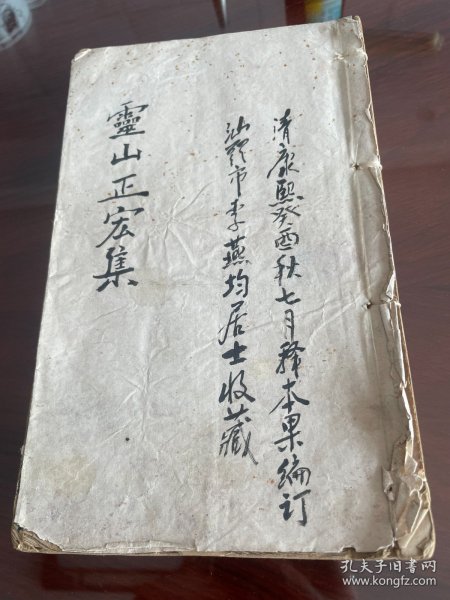 清康熙癸酉秋七月释本果编订
汕头市李燕均居士收藏
靈山正宏集
孔夫子旧书网
www.kongfz.com